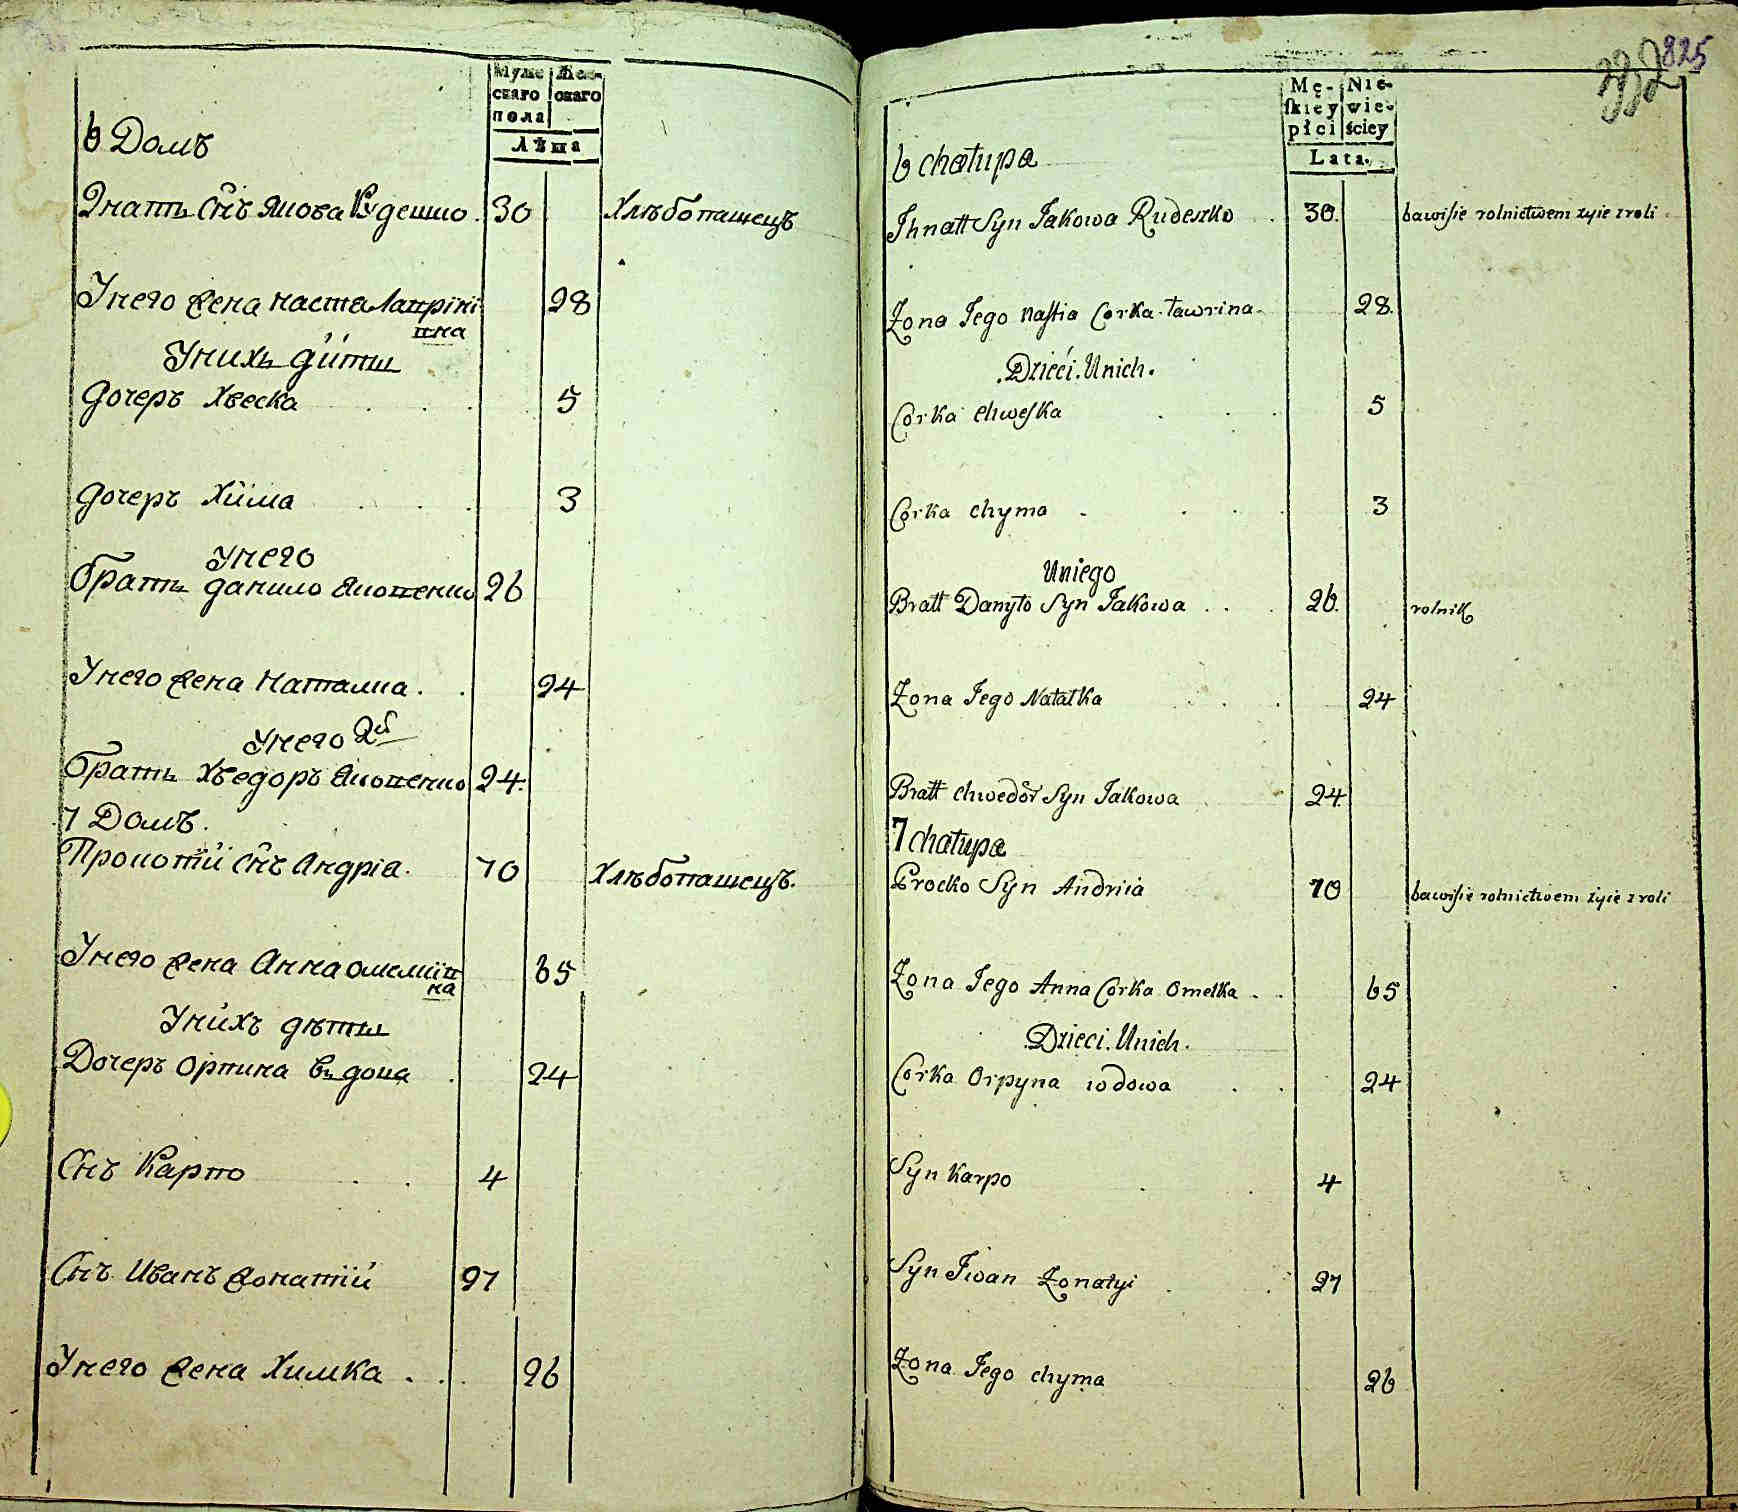 Муже Жен-
скаго скаго
пола
Лѣта
6 Домъ
Игнатъ Сн҃ъ Якова Рудешко . 30 Хлѣбопашецъ
Унего жена Наста Лаврѣнѣ 28
вна
Унихъ дїти
Дочеръ Хвеска . . . 5
Дочеръ Хїма . . . 3
Унего
Братъ данило Яковенко 26
Унего жена Наталка . . 24
Унего 2й
Братъ Хведоръ Яковенко 24.
7 Домъ.
Прокопїй Сн҃ъ Андрія. 70 Хлѣбопашецъ.
Унего жена Анна омелїя 65
на
Унихъ дѣти
Дочеръ Орпина вдова . 24
Сн҃ъ Карпо . . 4
Сн҃ъ Иванъ жонатїй 27
Унего жена Химка . . . 26
825
Mę- Nie-
ſkiey wie-
płci ściey
Lata.
6 chałupa
Ihnatt Syn Jakowa Rudeszko . 30. bawiſie rolnictwem zyie z roli .
Żona Jego Naſtia Corka Ławrina. 28.
.Dzieći. Unich.
Corka Chweſka . . . 5
Corka Chyma . . . . 3
Uniego
Bratt Danyło Syn Jakowa . . . 26. rolnik
Żona Jego Natałka . . . 24
Bratt Chwedor Syn Jakowa . . 24
7 chałupa
Procko Syn Andriia 70 bawiſie rolnictwem żyie z roli
Żona Jego Anna Corka Omelka . . 65
Dzieci. Unich.
Corka Orpyna wdowa . . 24
Syn Karpo . . 4
Syn Iwan Żonatyi . . 27
Żona Jego Chyma 26